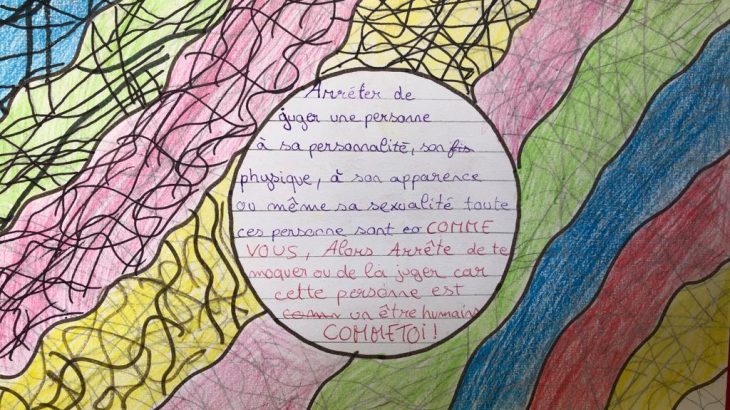 Arrêter de
juger une personne
à sa personnalité, son fis
physique, à son apparence
ou même sa sexualité toute
ces personne sont co COMME
VOUS, Alors Arrête de te
moquer ou de la juger car
cette persone est
comm un être humains
COMME TOI!